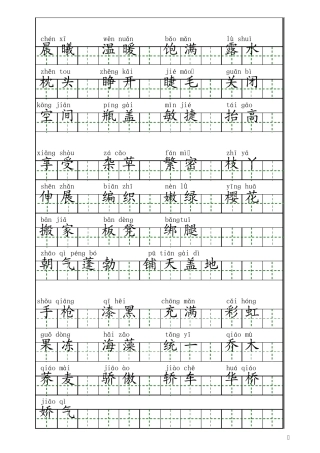 chén xī wēn nuǎn bǎo mǎn lù shuǐ
晨曦 温暖 饱满 露水
zhěn tou zhēng kāi jié máo guān bì
枕头 睁开 睫毛 关闭
kōng jiān píng gài mǐn jié tái gāo
空间 瓶盖 敏捷 抬高
xiǎng shòu zá cǎo fán mì zhī yā
享受 杂草 繁密 枝丫
shēn zhǎn biān zhī nèn lǜ yīng huā
伸展 编织 嫩绿 樱花
bān jiā bǎn dèng bǎng tuǐ
搬家 板凳 绑腿
zhāo qì péng bó pū tiān gài dì
朝气蓬勃 铺天盖地
shǒu qiāng qī hēi chōng mǎn cǎi hóng
手枪 漆黑 充满 彩虹
guǒ dòng hǎi zǎo tǒng yī qiáo mù
果冻 海藻 统一 乔木
qiáo mài jiāo ào jiào chē huá qiáo
荞麦 骄傲 轿车 华桥
jiāo qì
娇气